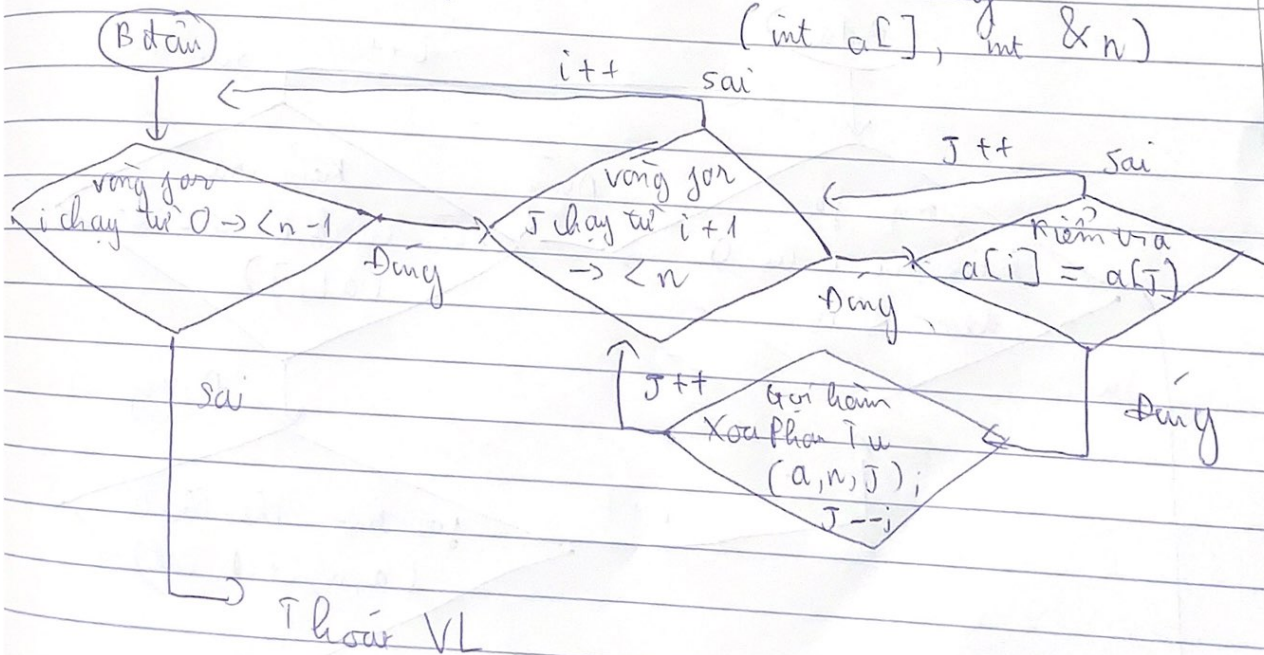 (int a[], int & n)
B đầu
i++
sai
J++
Sai
vòng for
i chạy từ 0 → < n - 1
Đúng
vòng for
J chạy từ i + 1
→ < n
Đúng
Kiểm tra
a[i] = a[J]
Đúng
sai
J++
Gọi hàm
Xoa Phan Tu
(a, n, J);
J--;
Thoát VL